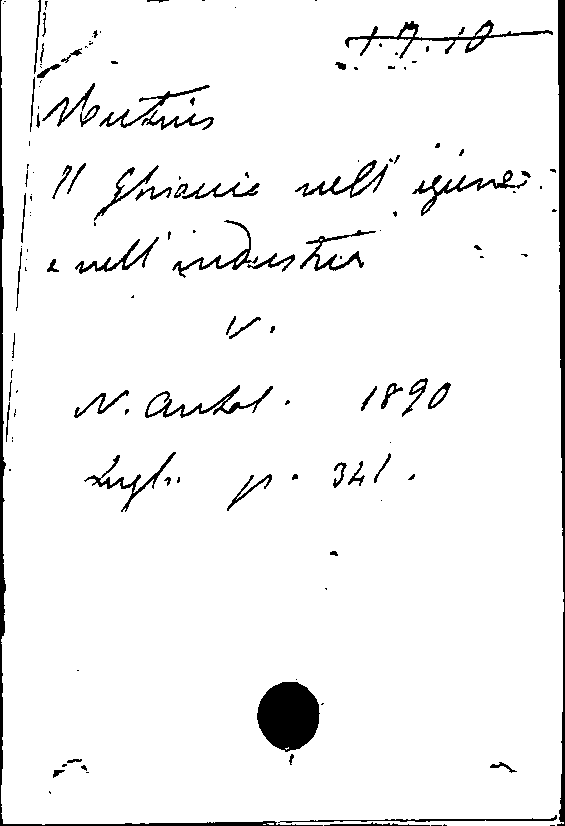 1.7.10
Il Ghiaccio nell' igiene
e nell' industria
v.
N. Antol. 1890
Lugl. p. 341.